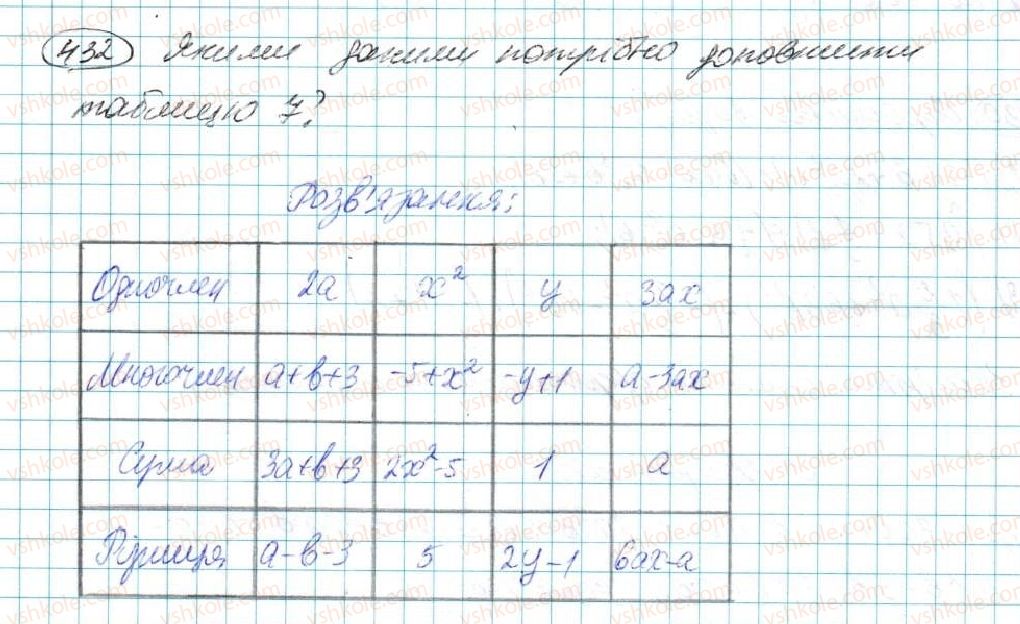 432 Якими даними потрібно доповнити
таблицю 7?
Розв'язання:
Одночлен 2a x² y 3ax
Многочлен a+b+3 -5+x² -y+1 a-3ax
Сума 3a+b+3 2x²-5 1 a
Різниця a-b-3 5 2y-1 6ax-a
vshkole.com